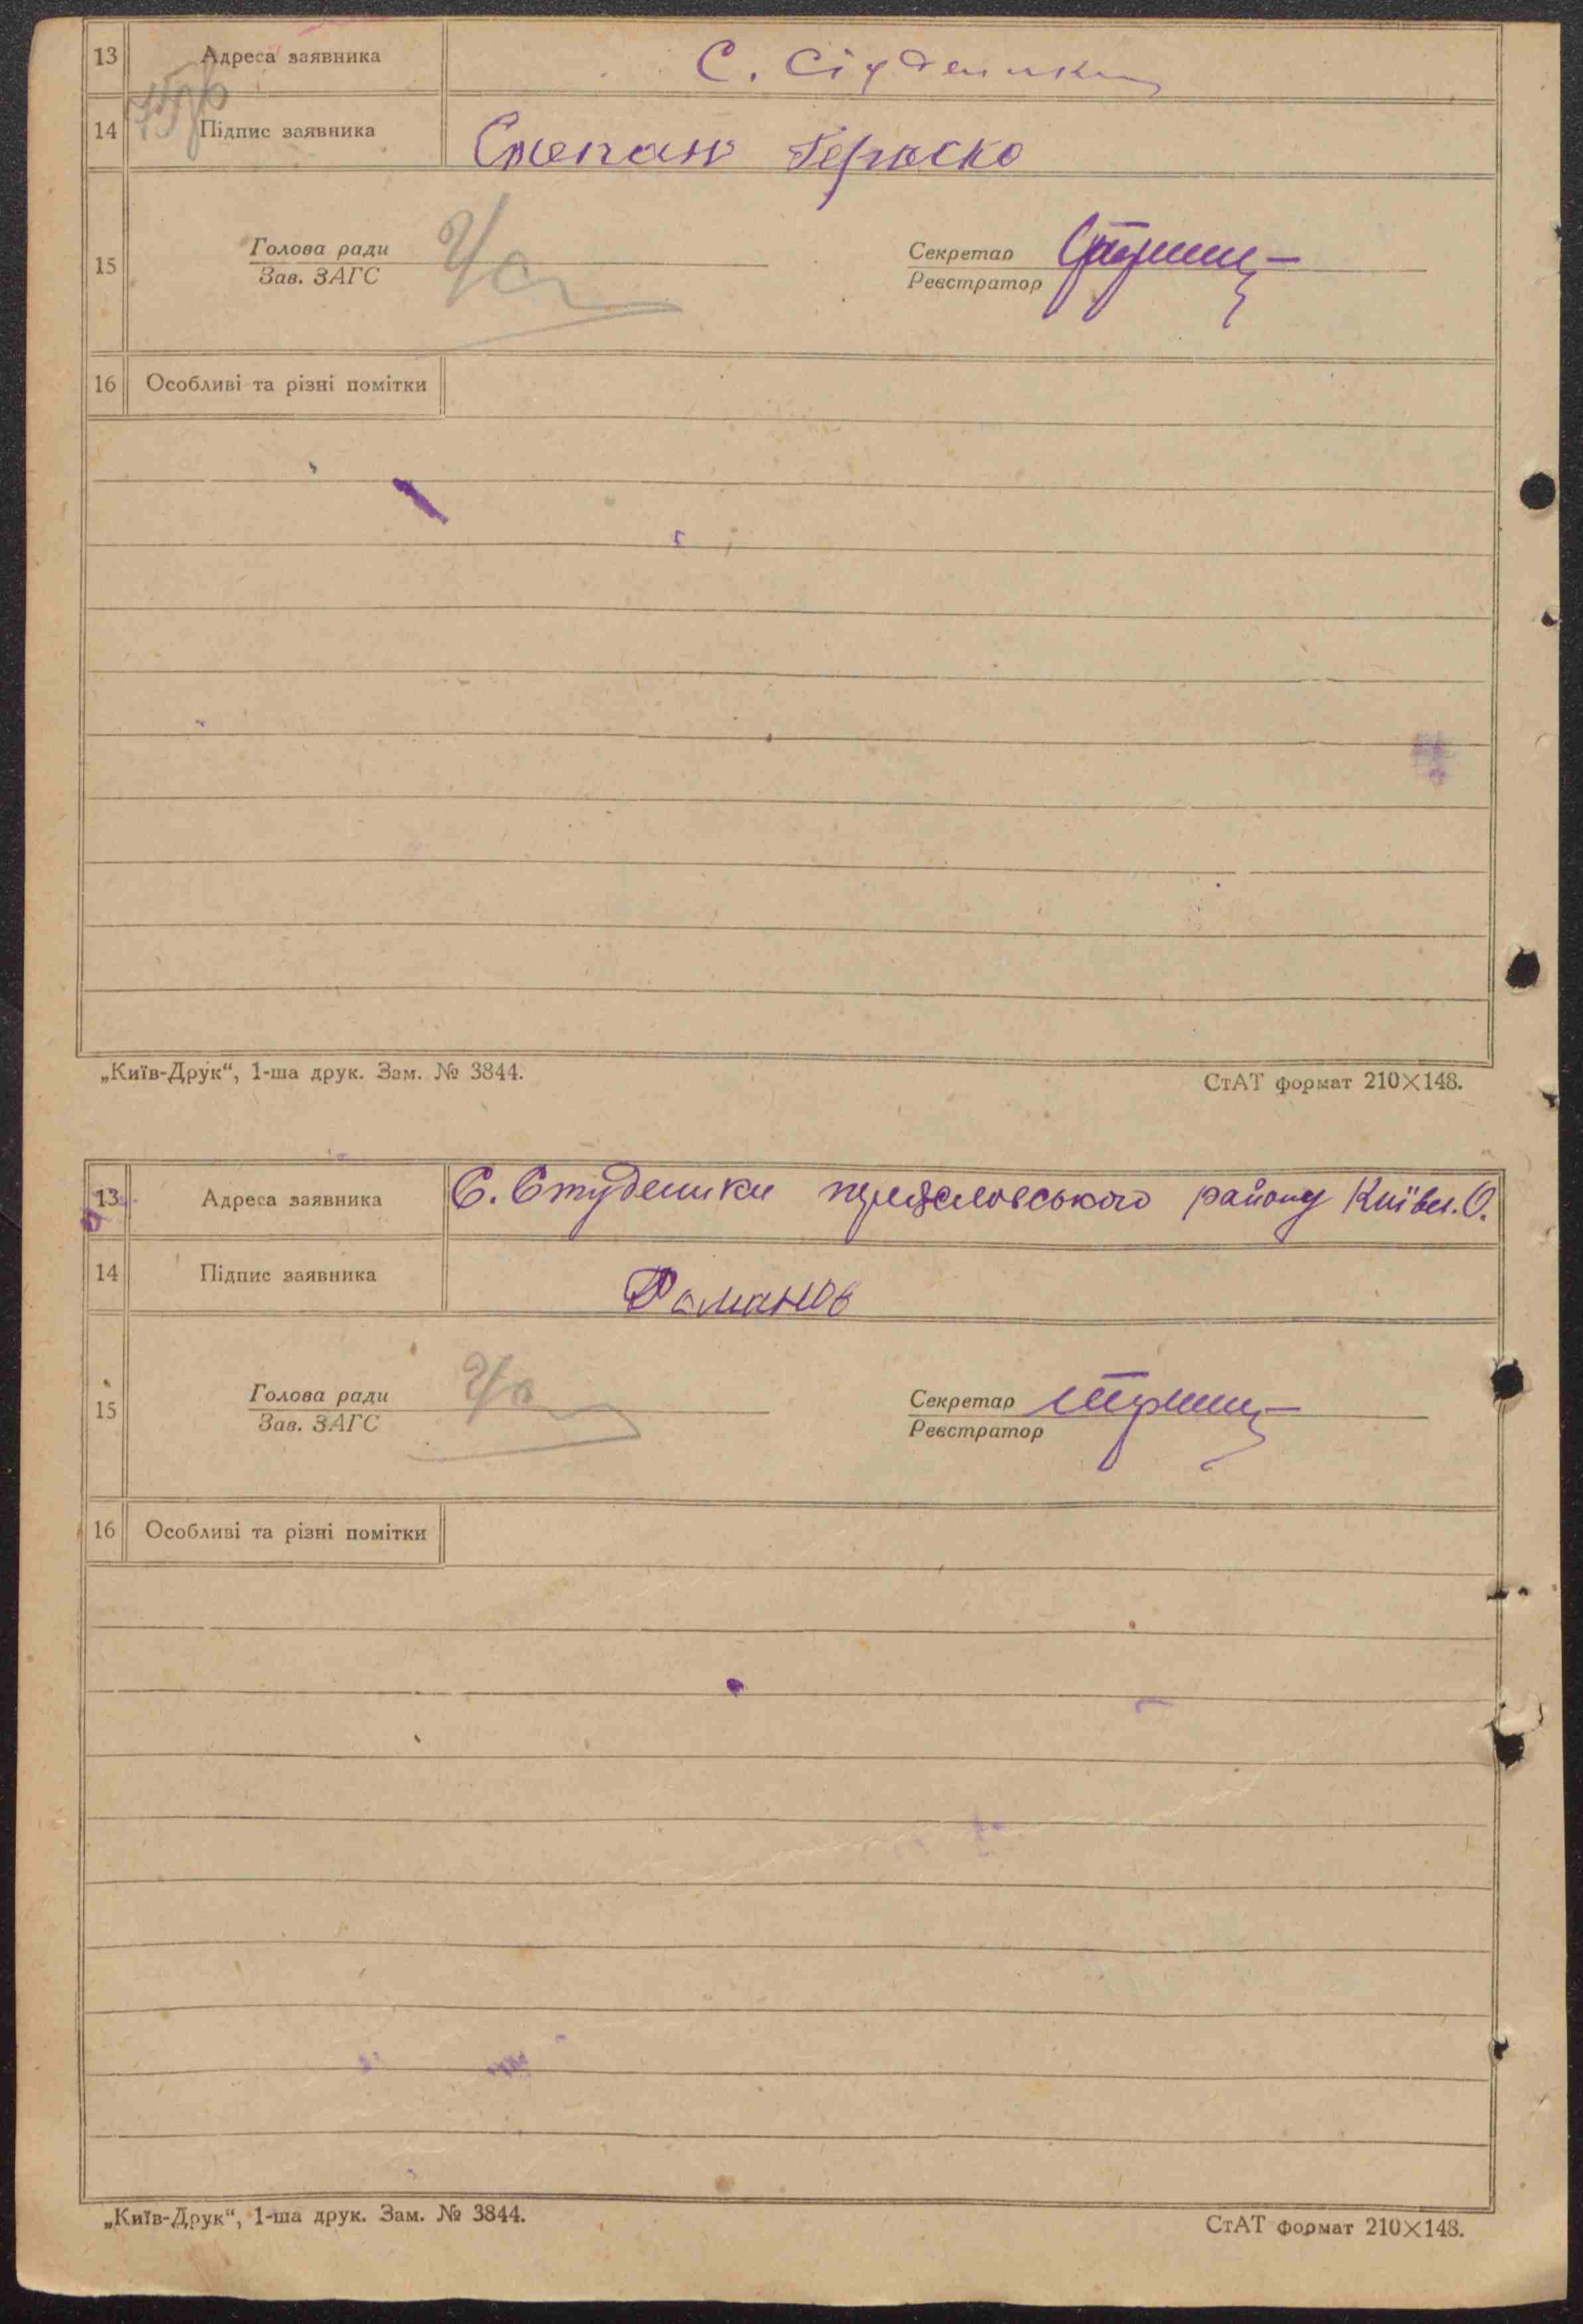 13 Адреса заявника С. Студеники
14 Підпис заявника Степан
15 Голова ради Секретар
Зав. ЗАГС Реєстратор
16 Особливі та різні помітки
„Київ-Друк“, 1-ша друк. Зам. № 3844. СтАТ формат 210×148.
13 Адреса заявника С. Студеники району Київс. О.
14 Підпис заявника Романов
15 Голова ради Секретар
Зав. ЗАГС Реєстратор
16 Особливі та різні помітки
„Київ-Друк“, 1-ша друк. Зам. № 3844. СтАТ формат 210×148.